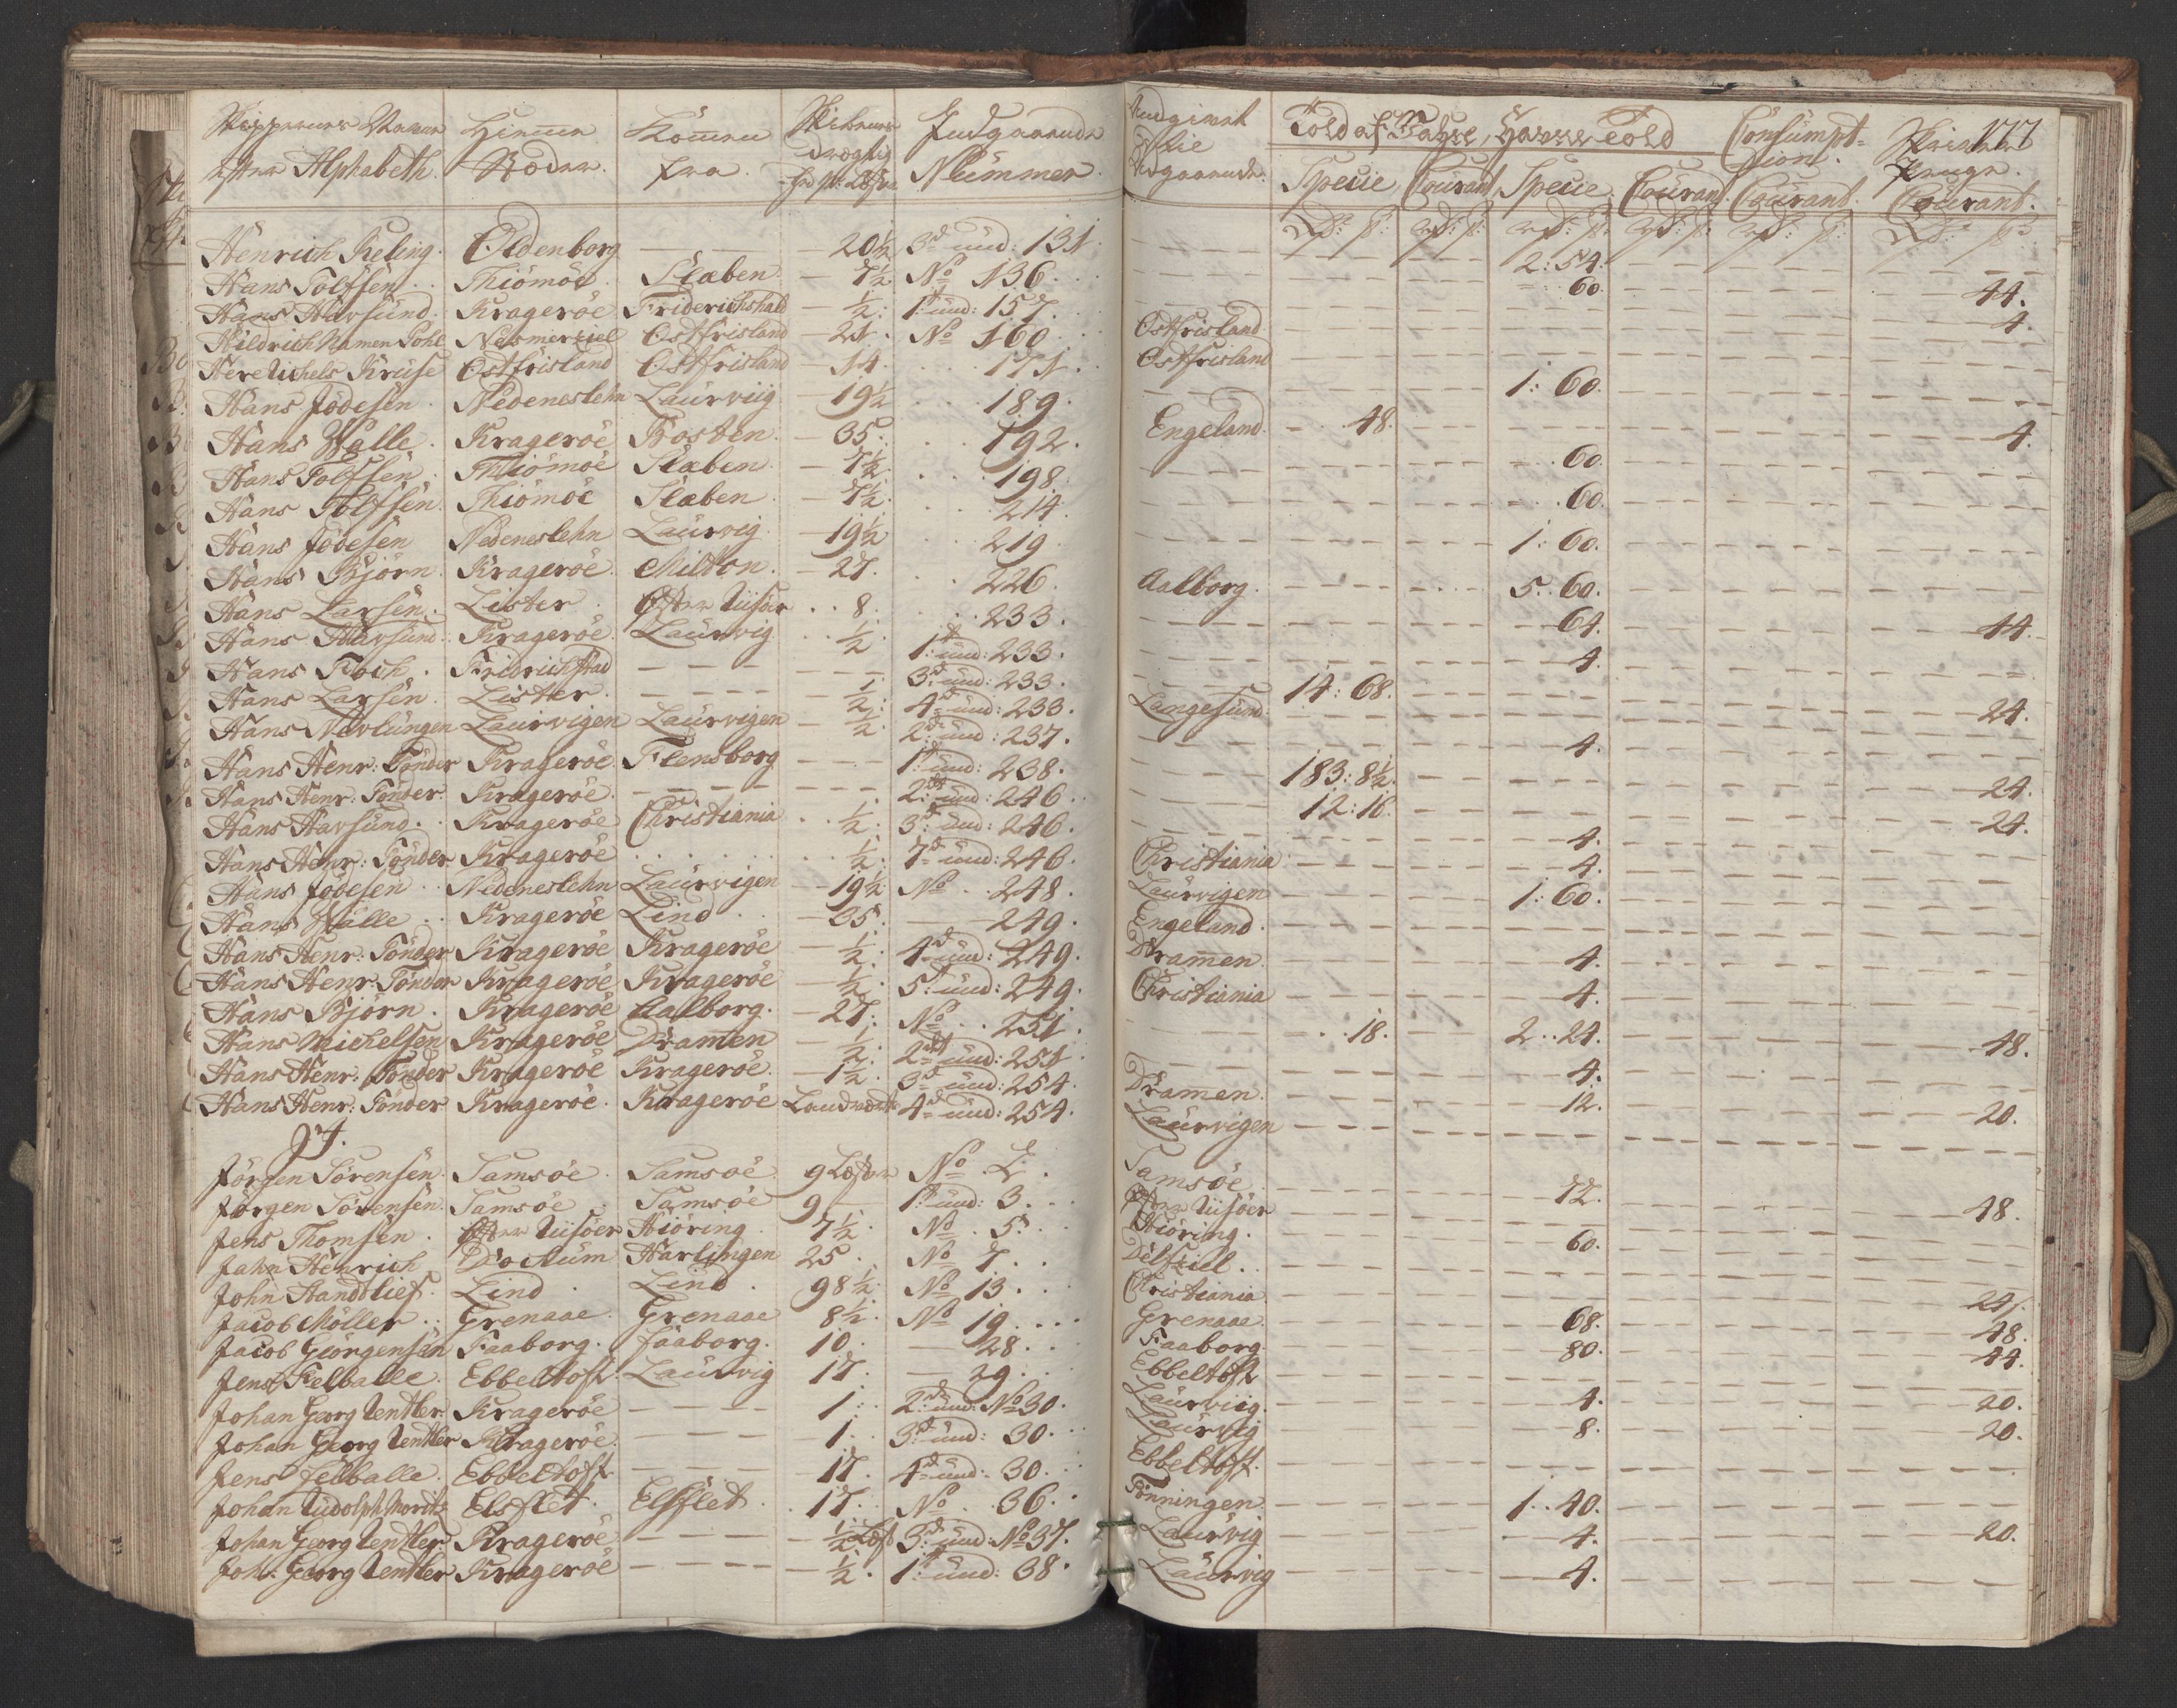 Skippernes Navne efter Alphabeth. | Hiemme Stæder. | Kommen fra. | Skibenes Drægtig | Indgaaende Nummer | Udgaaende | Told af | Told | Consumption. | Penge. 177
Specie | Courant | Specie | Courant | Courant | Courant.
Henrich Keling. Oldenborg — 20½ 3d und: 131. — 2: 54.
Hans Tolfsen. Thiömöe Slæben — 7½ No 136. — 60. 44.
Hans Havsund. Krageröe Friderichshald — ½ 1t und: 157. 4.
Hildrich Namen Pohl Nesmersiel Ostfrisland — 21. No 160. Ostfrisland
Ostfrisland Ostfrisland — 14. 171. Ostfrisland
Hans Jödesen Nedeneslehn Laurviig — 19½ 189. — 1: 60.
Hans Walle. Krageröe Bosten — 35. 192. Engeland. 48. 4.
Hans Tolfsen. Thiömöe Slæben — 7½ 198. — 60.
Hans Tolfsen. Thiömöe Slæben — 7½ 214. — 60.
Hans Jödesen Nedeneslehn Laurvig — 19½ 219. — 1: 60.
Hans Björn. Krageröe Milton. — 27. 226. Aalborg. — 5: 60.
Hans Larsen. Lister. Öster Riisöer 8. 233. — 64. 44.
Hans Havsund. Krageröe Laurvig ½ 1t und: 233. — 4.
Hans Koch. Fridrichstad — — 3d und: 233. 14: 68.
Hans Larsen. Lister. — ½ 4d und: 233. Langesund 24.
Hans Nevlungen Laurvigen Laurvigen — ½ 2d und: 237. — 4.
Hans Henr: Tönder Krageröe Flensborg — 1t und: 238. 183: 8½. 24.
Hans Henr: Tönder. Krageröe — — 2d und: 246. 12: 16. 24.
Hans Havsund. Krageröe Christiania ½ 3d und: 246. — 4.
Hans Henr: Tönder Krageröe ½ 7d und: 246. Christiania — 4.
Hans Jödesen Nedeneslehn Laurvigen — 19½ No 248. Laurvigen 1: 60.
Hans Walle Krageröe Lind — 35. — 249. Engeland.
Hans Henr: Tönder Krageröe Krageröe — ½ 4d und: 249. Dramen 4.
Hans Henr: Tönder Krageröe Krageröe — ½ 5t und: 249. Christiania 4.
Hans Björn. Krageröe Aalborg. — 27. No 251. 18. 2: 24. 48.
Hans Michelsen Krageröe Dramen — ½ 2d und: 251 — 4.
Hans Henr: Tönder Krageröe Krageröe. — 1½. 3d und: 254. Dramen. 12. 20.
Hans Henr: Tönder Krageröe. Krageröe 4d und: 254. Laurvigen
J.
Jörgen Sörensen. Samsöe. Samsöe. 9 Læster No 2. Samsöe.
Jörgen Sörensen. Samsöe. Samsöe 9 — 1t und: 3. Öster Riisöer 72. 48.
Jens Thomsen. Öster Riisöer Hiöring. 7½. No 5. Hiöring. 60.
Jahn Henrich Dockum Harlingen 25. No 7. Delfziel.
John Standtlief. Lind. Lind. 98½. No 13. Christiania. 24.
Jacob Möller. Grenaae. Grenaae 8½. No 19. Grenaae 68. 48.
Jacob Geörgensen Faaborg. Faaborg. 10. — 28. Faaborg. 80. 44.
Jens Felballe. Ebbeltoft. Laurvig 17. — 29. Ebbeltoft
Johan Georg Rentler Krageröe — 1. 2d und: No 30. Laurviig. 4. 20.
Johan Georg Rentler Krageröe. — 1. 3d und: 30. Laurvig 8. 20.
Jens Felballe. Ebbeltoft. — 17. 4d und: 30. Ebbeltoft.
Johan Rudolph Moritz Elsflet. Elsflet. 17. No 36. Tönningen. 1: 40.
Johan Georg Rentler. Krageröe. — ½ Læst 3d und: No 37. Laurvig 4. 20.
Joh: Georg Rentler Krageröe — ½. 1t und: 38. Laurvig 4.